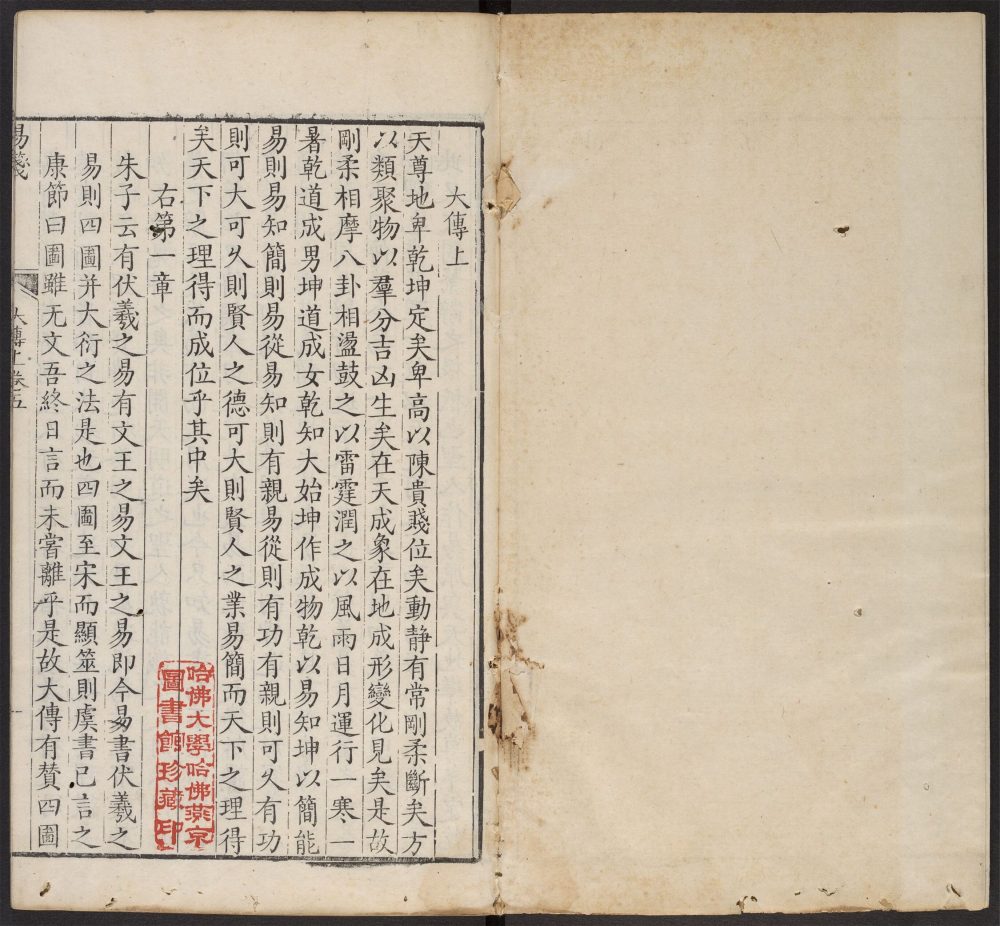 大傳上
天尊地卑乾坤定矣卑高以陳貴賤位矣動靜有常剛柔斷矣方
以類聚物以羣分吉凶生矣在天成象在地成形變化見矣是故
剛柔相摩八卦相盪鼓之以雷霆潤之以風雨日月運行一寒一
暑乾道成男坤道成女乾知大始坤作成物乾以易知坤以簡能
易則易知簡則易從易知則有親易從則有功有親則可乆有功
則可大可乆則賢人之德可大則賢人之業易簡而天下之理得
矣天下之理得而成位乎其中矣
右第一章
朱子云有伏羲之易有文王之易文王之易即今易書伏羲之
易則四圖并大衍之法是也四圖至宋而顯筮則虞書已言之
康節曰圖雖无文吾終日言而未嘗離乎是故大傳有贊四圖
易箋
大傳上卷五
哈佛大學哈佛燕京
圖書館珍藏印